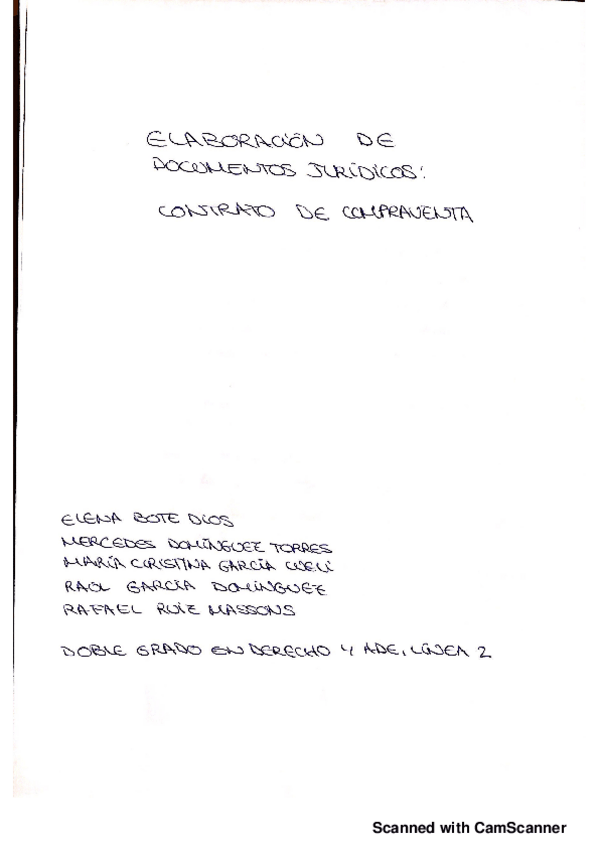 ELABORACIÓN DE
DOCUMENTOS JURÍDICOS:
CONTRATO DE COMPRAVENTA
ELENA BOTE DIOS
MERCEDES DOMÍNGUEZ TORRES
MARÍA CRISTINA GARCÍA
RAÚL GARCÍA DOMÍNGUEZ
RAFAEL RUIZ MASSONS
DOBLE GRADO EN DERECHO Y ADE, LÍNEA 2
Scanned with CamScanner